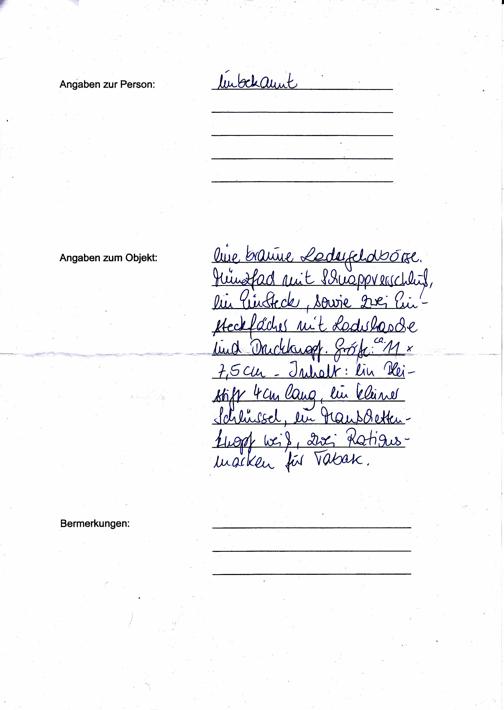 Angaben zur Person:
unbekannt
Angaben zum Objekt:
Eine braune Ledergeldbörse.
Münzfad mit Schnappverschluß,
ein Einsteck, sowie zwei Ein-
steckfächer mit Lederlasche
und Druckknopf. Größe: ca. 11 x
7,5 cm - Inhalt: ein Blei-
stift 4 cm lang, ein kleiner
Schlüssel, ein Manschetten-
knopf weiß, zwei Rations-
marken für Tabak.
Bermerkungen: